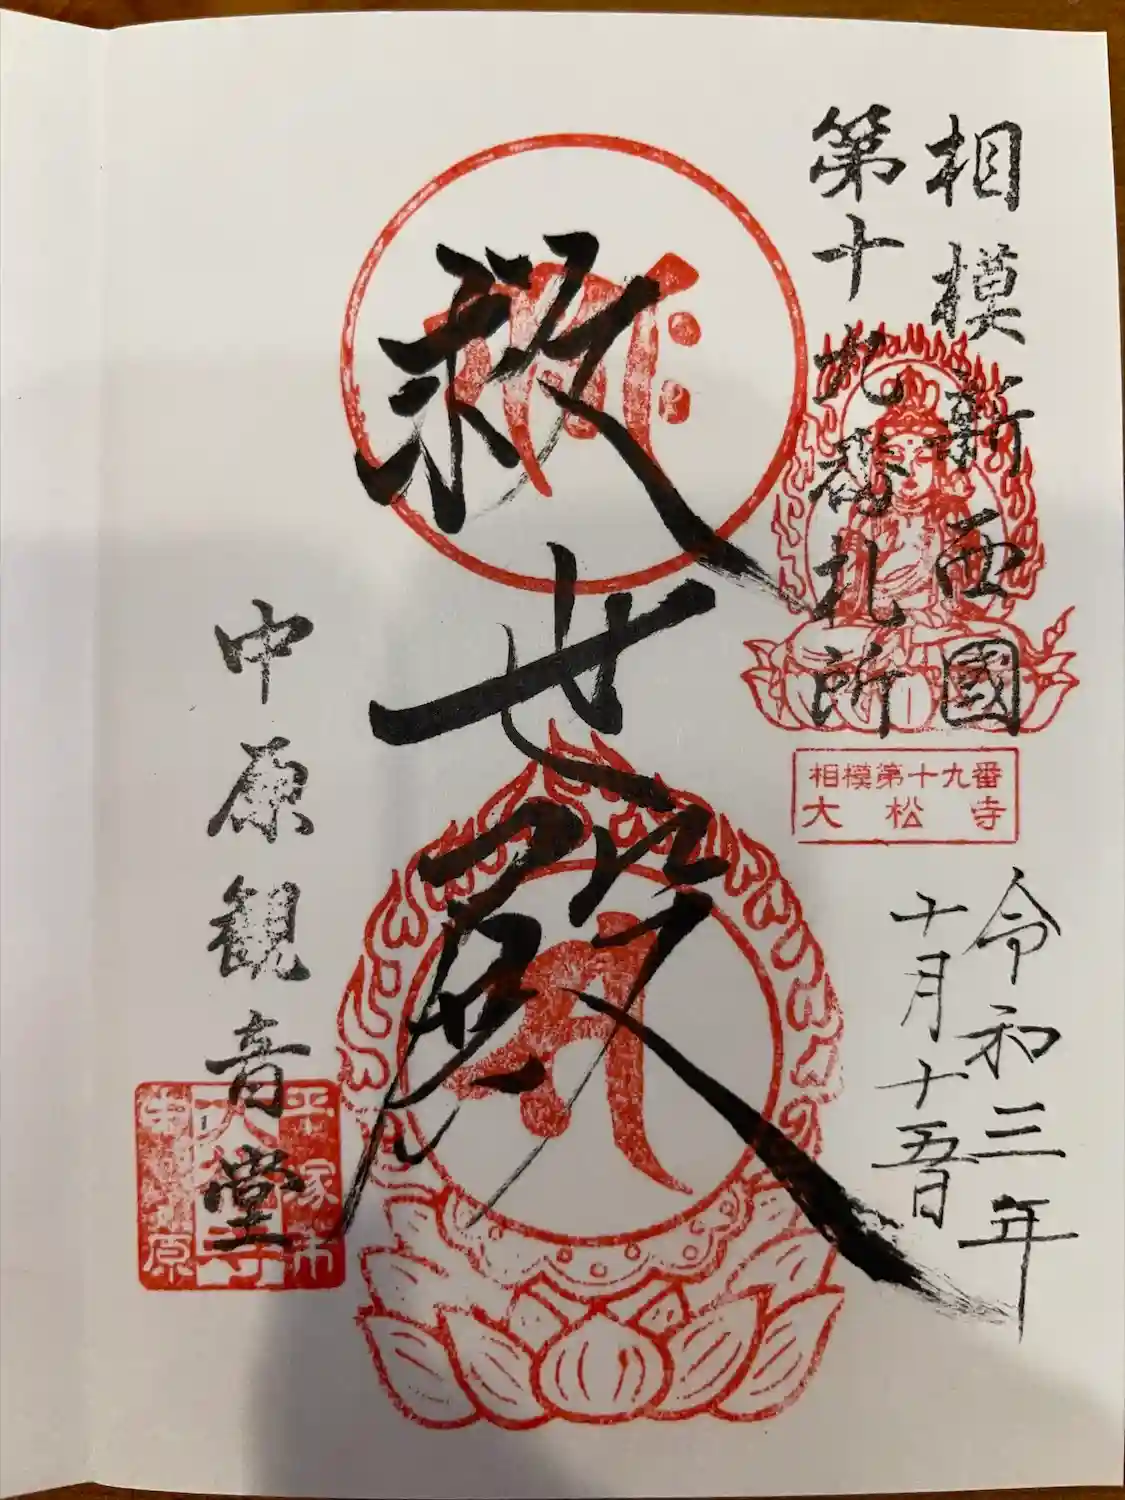 相模新西國
第十九番札所
相模第十九番
大松寺
令和三年
十月十五日
救世殿
中原観音堂
平塚市
大松寺
中原